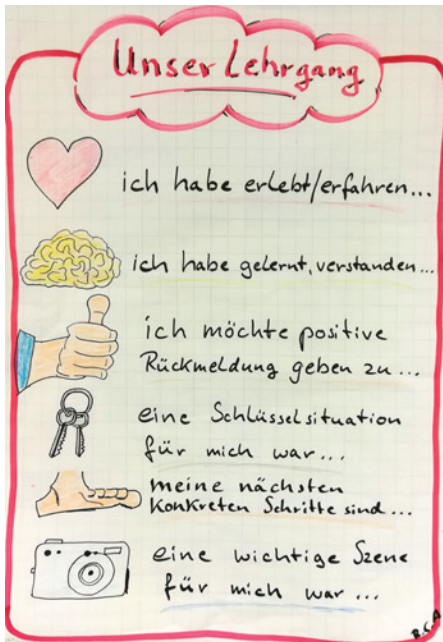 Unser Lehrgang
ich habe erlebt/erfahren...
ich habe gelernt, verstanden...
ich möchte positive
Rückmeldung geben zu...
eine Schlüsselsituation
für mich war...
meine nächsten
konkreten Schritte sind...
eine wichtige Szene
für mich war...
R.C.A